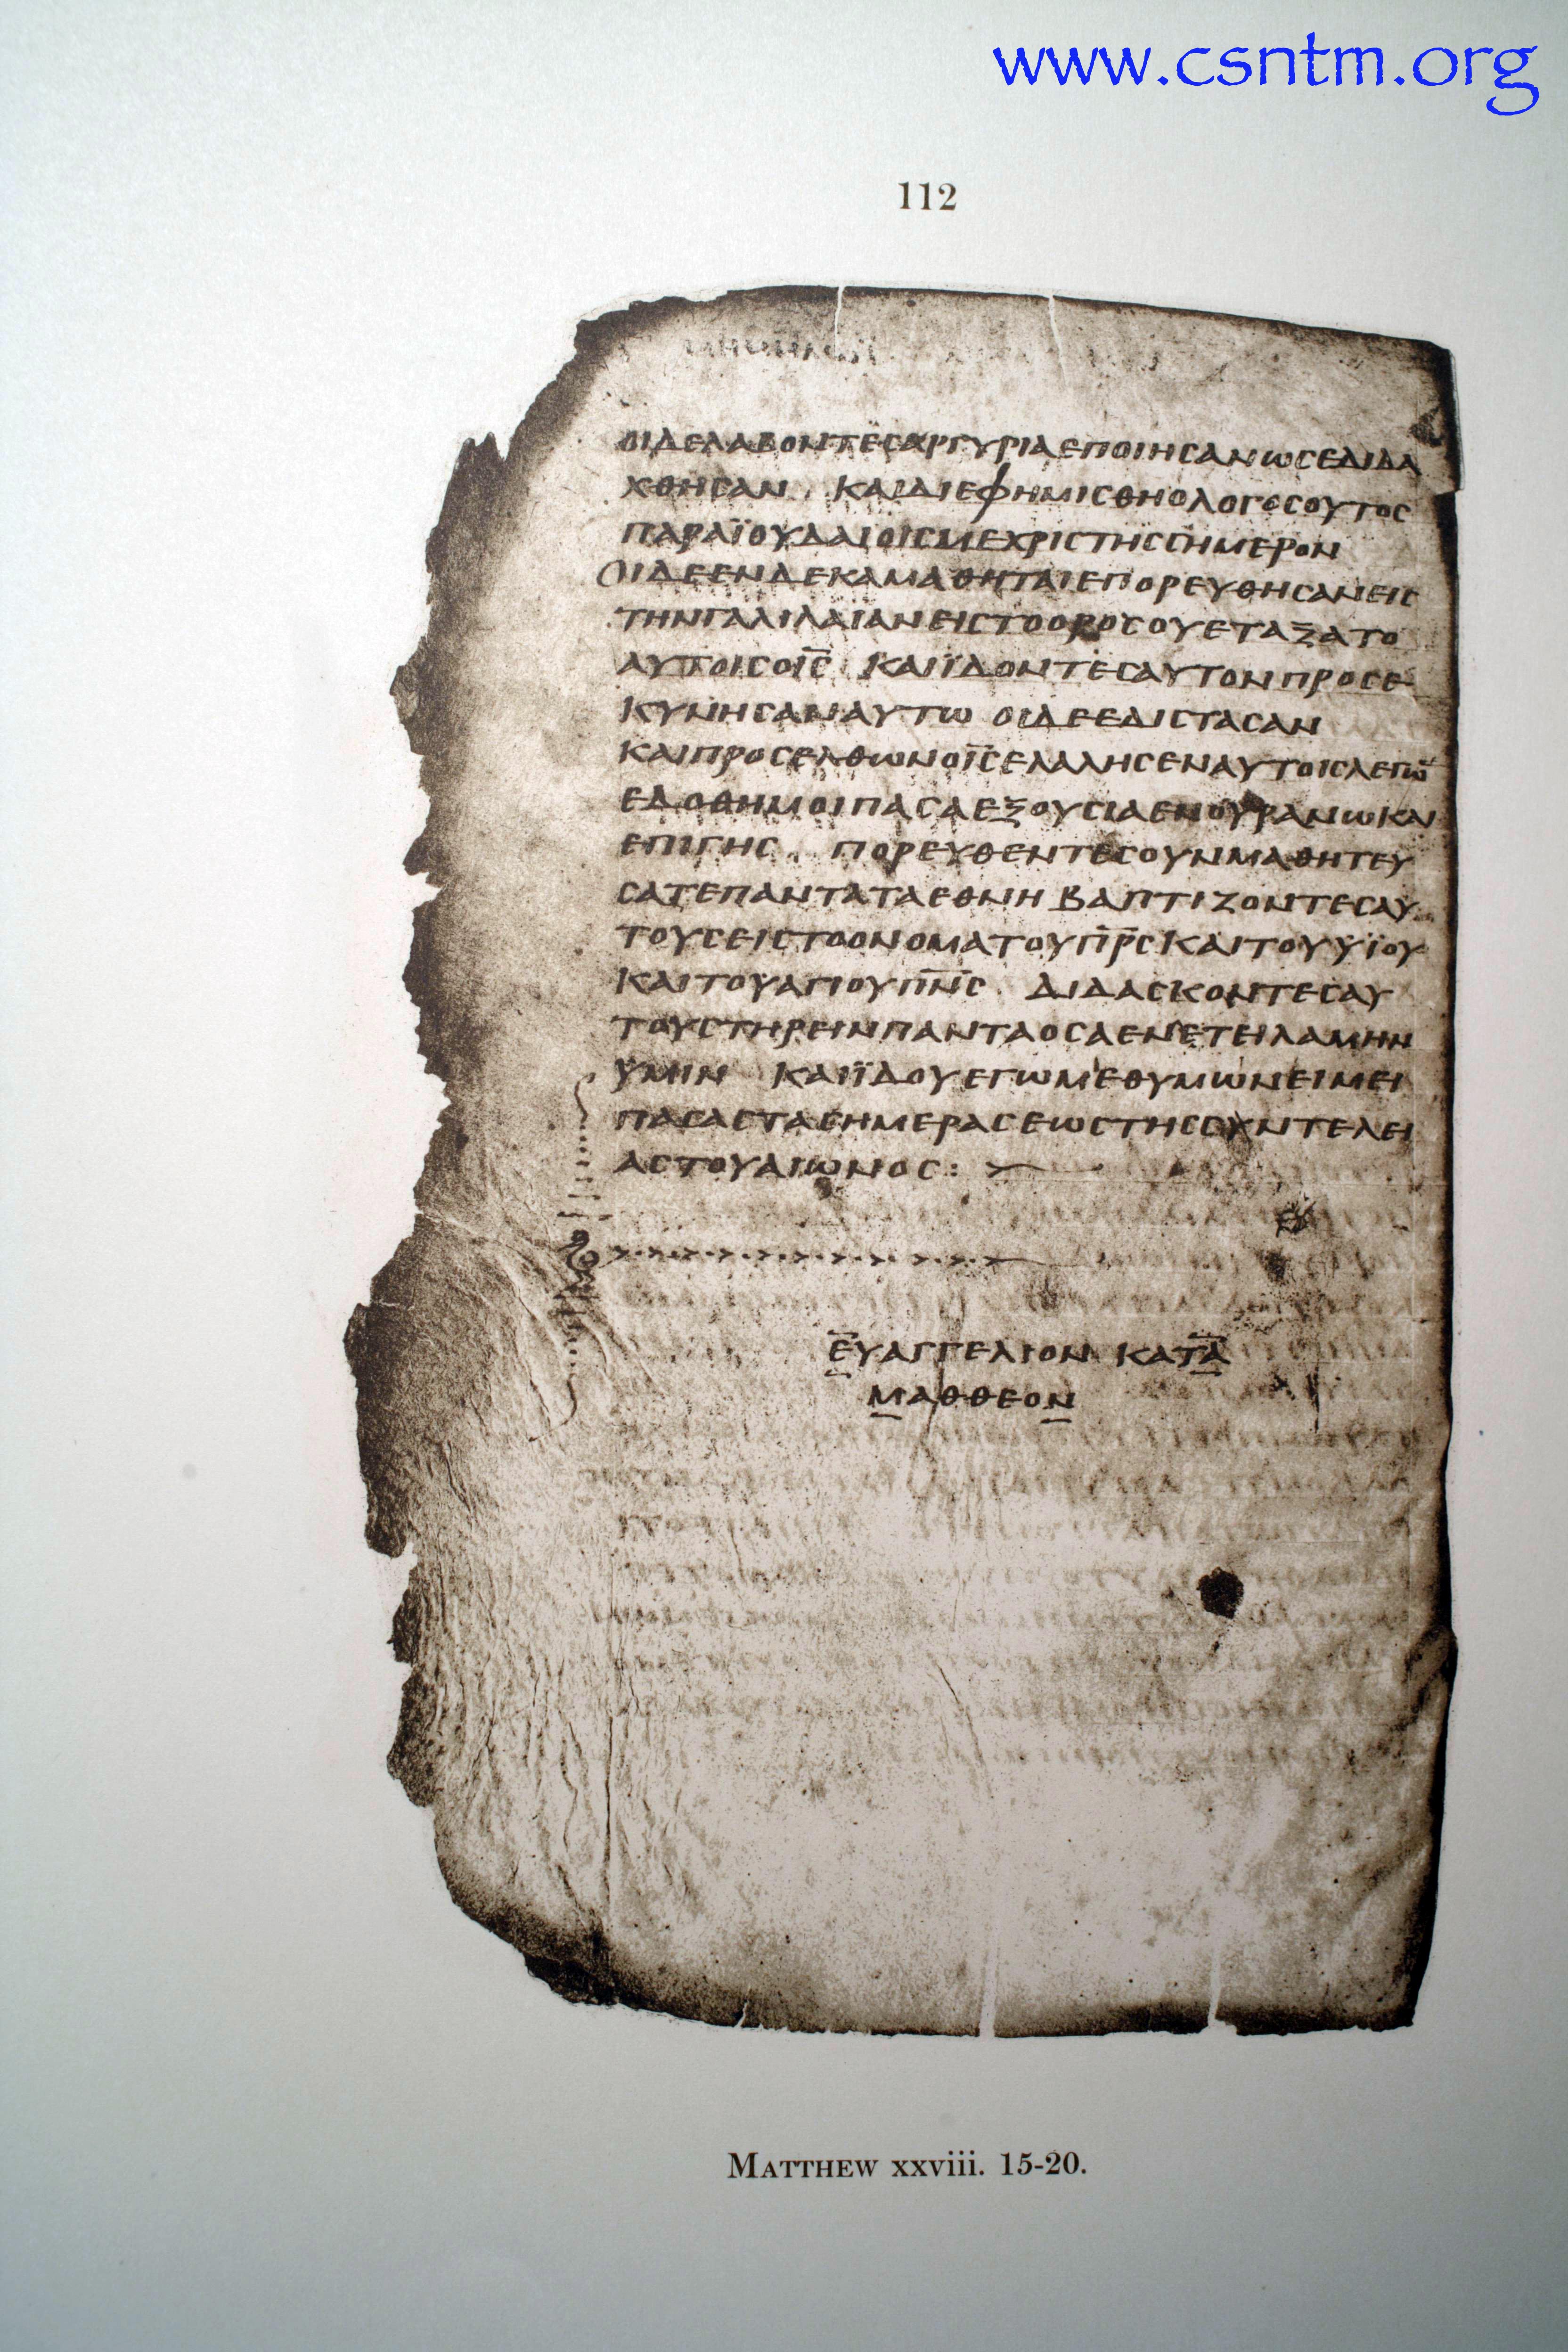 www.csntm.org
112
ΟΙΔΕΛΑΒΟΝΤΕCΑΡΓΥΡΙΑΕΠΟΙΗCΑΝΩCΕΔΙΔΑ
ΧΘΗCΑΝ ΚΑΙΔΙΕΦΗΜΙCΘΗΟΛΟΓΟCΟΥΤΟC
ΠΑΡΑΪΟΥΔΑΙΟΙCΜΕΧΡΙCΤΗCCΗΜΕΡΟΝ
ΟΙΔΕΕΝΔΕΚΑΜΑΘΗΤΑΙΕΠΟΡΕΥΘΗCΑΝΕΙC
ΤΗΝΓΑΛΙΛΑΙΑΝΕΙCΤΟΟΡΟCΟΥΕΤΑΞΑΤΟ
ΑΥΤΟΙCΟΙ̅C̅ ΚΑΙΪΔΟΝΤΕCΑΥΤΟΝΠΡΟCΕ
ΚΥΝΗCΑΝΑΥΤΩ ΟΙΔΕΕΔΙCΤΑCΑΝ
ΚΑΙΠΡΟCΕΛΘΩΝΟΙ̅C̅ΕΛΑΛΗCΕΝΑΥΤΟΙCΛΕΓΩ̅
ΕΔΟΘΗΜΟΙΠΑCΑΕΞΟΥCΙΑΕΝΟΥΡΑΝΩΚΑΙ
ΕΠΙΓΗC ΠΟΡΕΥΘΕΝΤΕCΟΥΝΜΑΘΗΤΕΥ
CΑΤΕΠΑΝΤΑΤΑΕΘΝΗ ΒΑΠΤΙΖΟΝΤΕCΑΥ
ΤΟΥCΕΙCΤΟΟΝΟΜΑΤΟΥΠ̅Ρ̅C̅ΚΑΙΤΟΥΫΪΟΥ
ΚΑΙΤΟΥΑΓΙΟΥΠ̅Ν̅C̅ ΔΙΔΑCΚΟΝΤΕCΑΥ
ΤΟΥCΤΗΡΕΙΝΠΑΝΤΑΟCΑΕΝΕΤΕΙΛΑΜΗΝ
ΫΜΙΝ ΚΑΙΪΔΟΥΕΓΩΜΕΘΥΜΩΝΕΙΜΕΙ
ΠΑCΑCΤΑCΗΜΕΡΑCΕΩCΤΗCCΥΝΤΕΛΕΙ
ΑCΤΟΥΑΙΩΝΟC:
ΕΥΑΓΓΕΛΙΟΝ ΚΑΤΑ
ΜΑΘΘΕΟΝ
MATTHEW xxviii. 15-20.